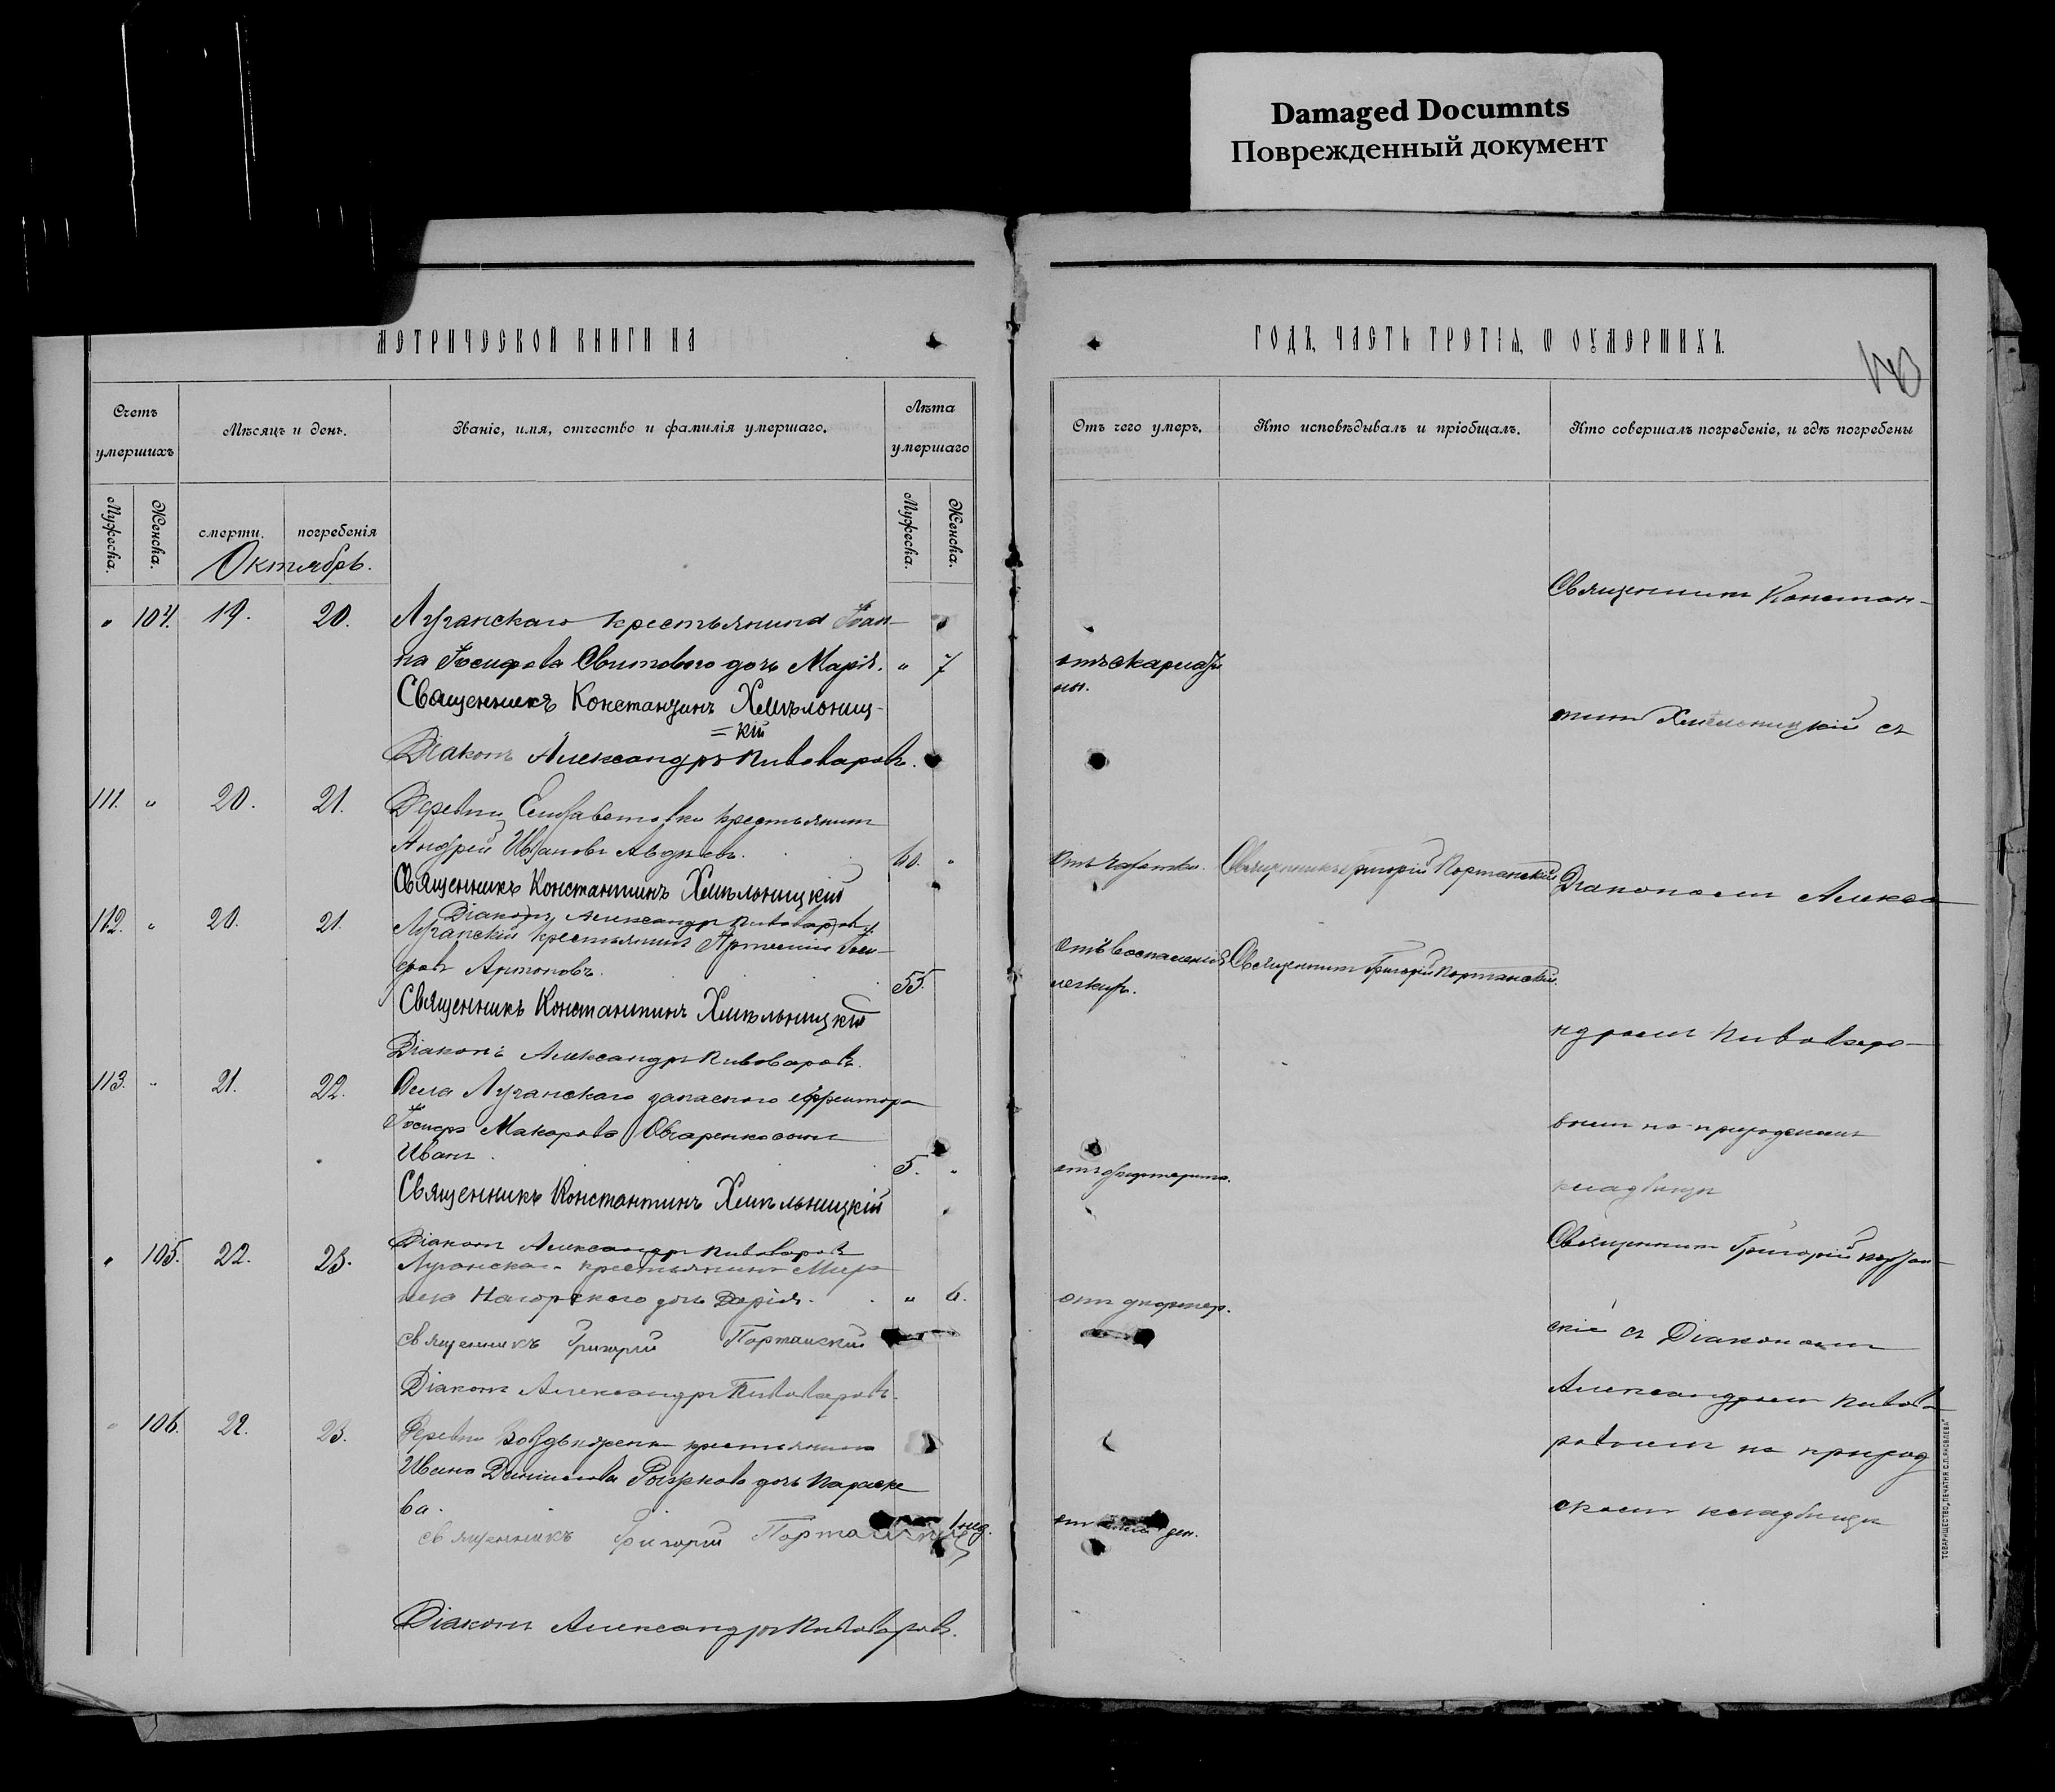 Damaged Documnts
Поврежденный документ
МЕТРИЧЕСКОЙ КНИГИ НА
Счетъ умершихъ
Мѣсяцъ и день.
Званіе, имя, отчество и фамилія умершаго.
Лѣта умершаго
Мужеска.
Женска.
смерти.
погребенія
Мужеска.
Женска.
Октябрь.
" 104. 19. 20. Луганскаго крестьянина Іоан-
на Іосифова Свитового дочь Марія. " 7
Священникъ Константинъ Хмѣльниц-
=кій
Діаконъ Александръ Пивоваровъ.
111. " 20. 21. Деревни Елисаветовки крестьянинъ
Андрей Ивановъ Авдѣевъ. 60. "
Священникъ Константинъ Хмѣльницкій
Діаконъ Александръ Пивоваровъ
112. " 20. 21. Луганскій крестьянинъ Артемій Іоси-
фовъ Антоновъ. 55.
Священникъ Константинъ Хмѣльницкій
Діаконъ Александръ Пивоваровъ.
113. " 21. 22. Села Луганскаго запаснаго ефрейтора
Іосифа Макарова Овчаренко сынъ
Иванъ. 5. "
Священникъ Константинъ Хмѣльницкій
Діаконъ Александръ Пивоваровъ
" 105. 22. 23. Луганскаго крестьянина
Нагорскаго дочь Дарія. " 6.
священникъ Григорій Портанскій
Діаконъ Александръ Пивоваровъ.
" 106. 22. 23. Деревни крестьянина
Ивана дочь Параске
ва. 1 нед.
священникъ Григорій Портанскій
Діаконъ Александръ Пивоваровъ.
ГОДЪ, ЧАСТЬ ТРЕТІЯ, Ѡ ОУМЕРШИХЪ.
Отъ чего умеръ.
Кто исповѣдывалъ и пріобщалъ.
Кто совершалъ погребеніе, и гдѣ погребены
отъ скарлати
ны.
отъ чахотки. Священникъ Григорій Портанскій
отъ воспаленія Священникъ Григорій Портанскій.
легкихъ.
отъ дифтерита.
отъ дифтер.
Священникъ Констан-
тинъ Хмѣльницкій съ
Діакономъ Алекса-
ндромъ Пивоваро-
вымъ на приходскомъ
кладбищѣ
Священникъ Григорій Портан-
скій съ Діакономъ
Александромъ Пивова-
ровымъ на приход
скомъ кладбищѣ
ТОВАРИЩЕСТВО „ПЕЧАТНЯ С.П.ЯКОВЛЕВА"